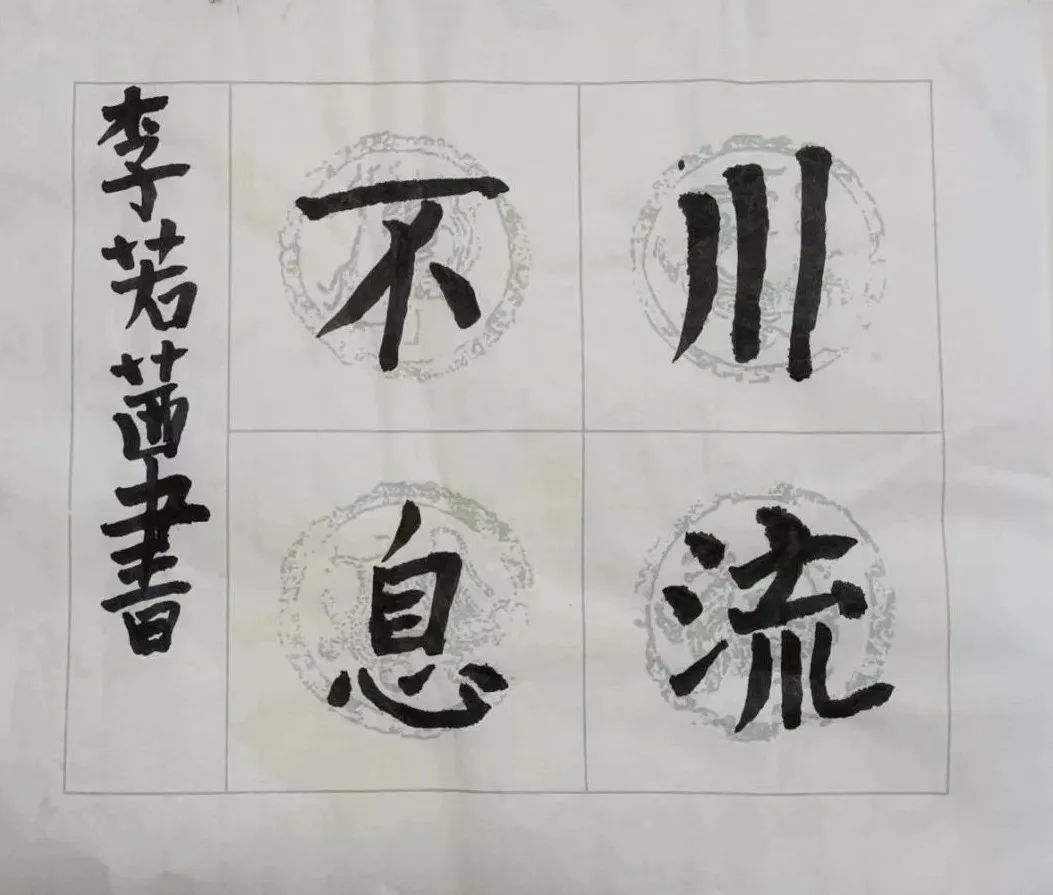 川流
不息
李若茜書